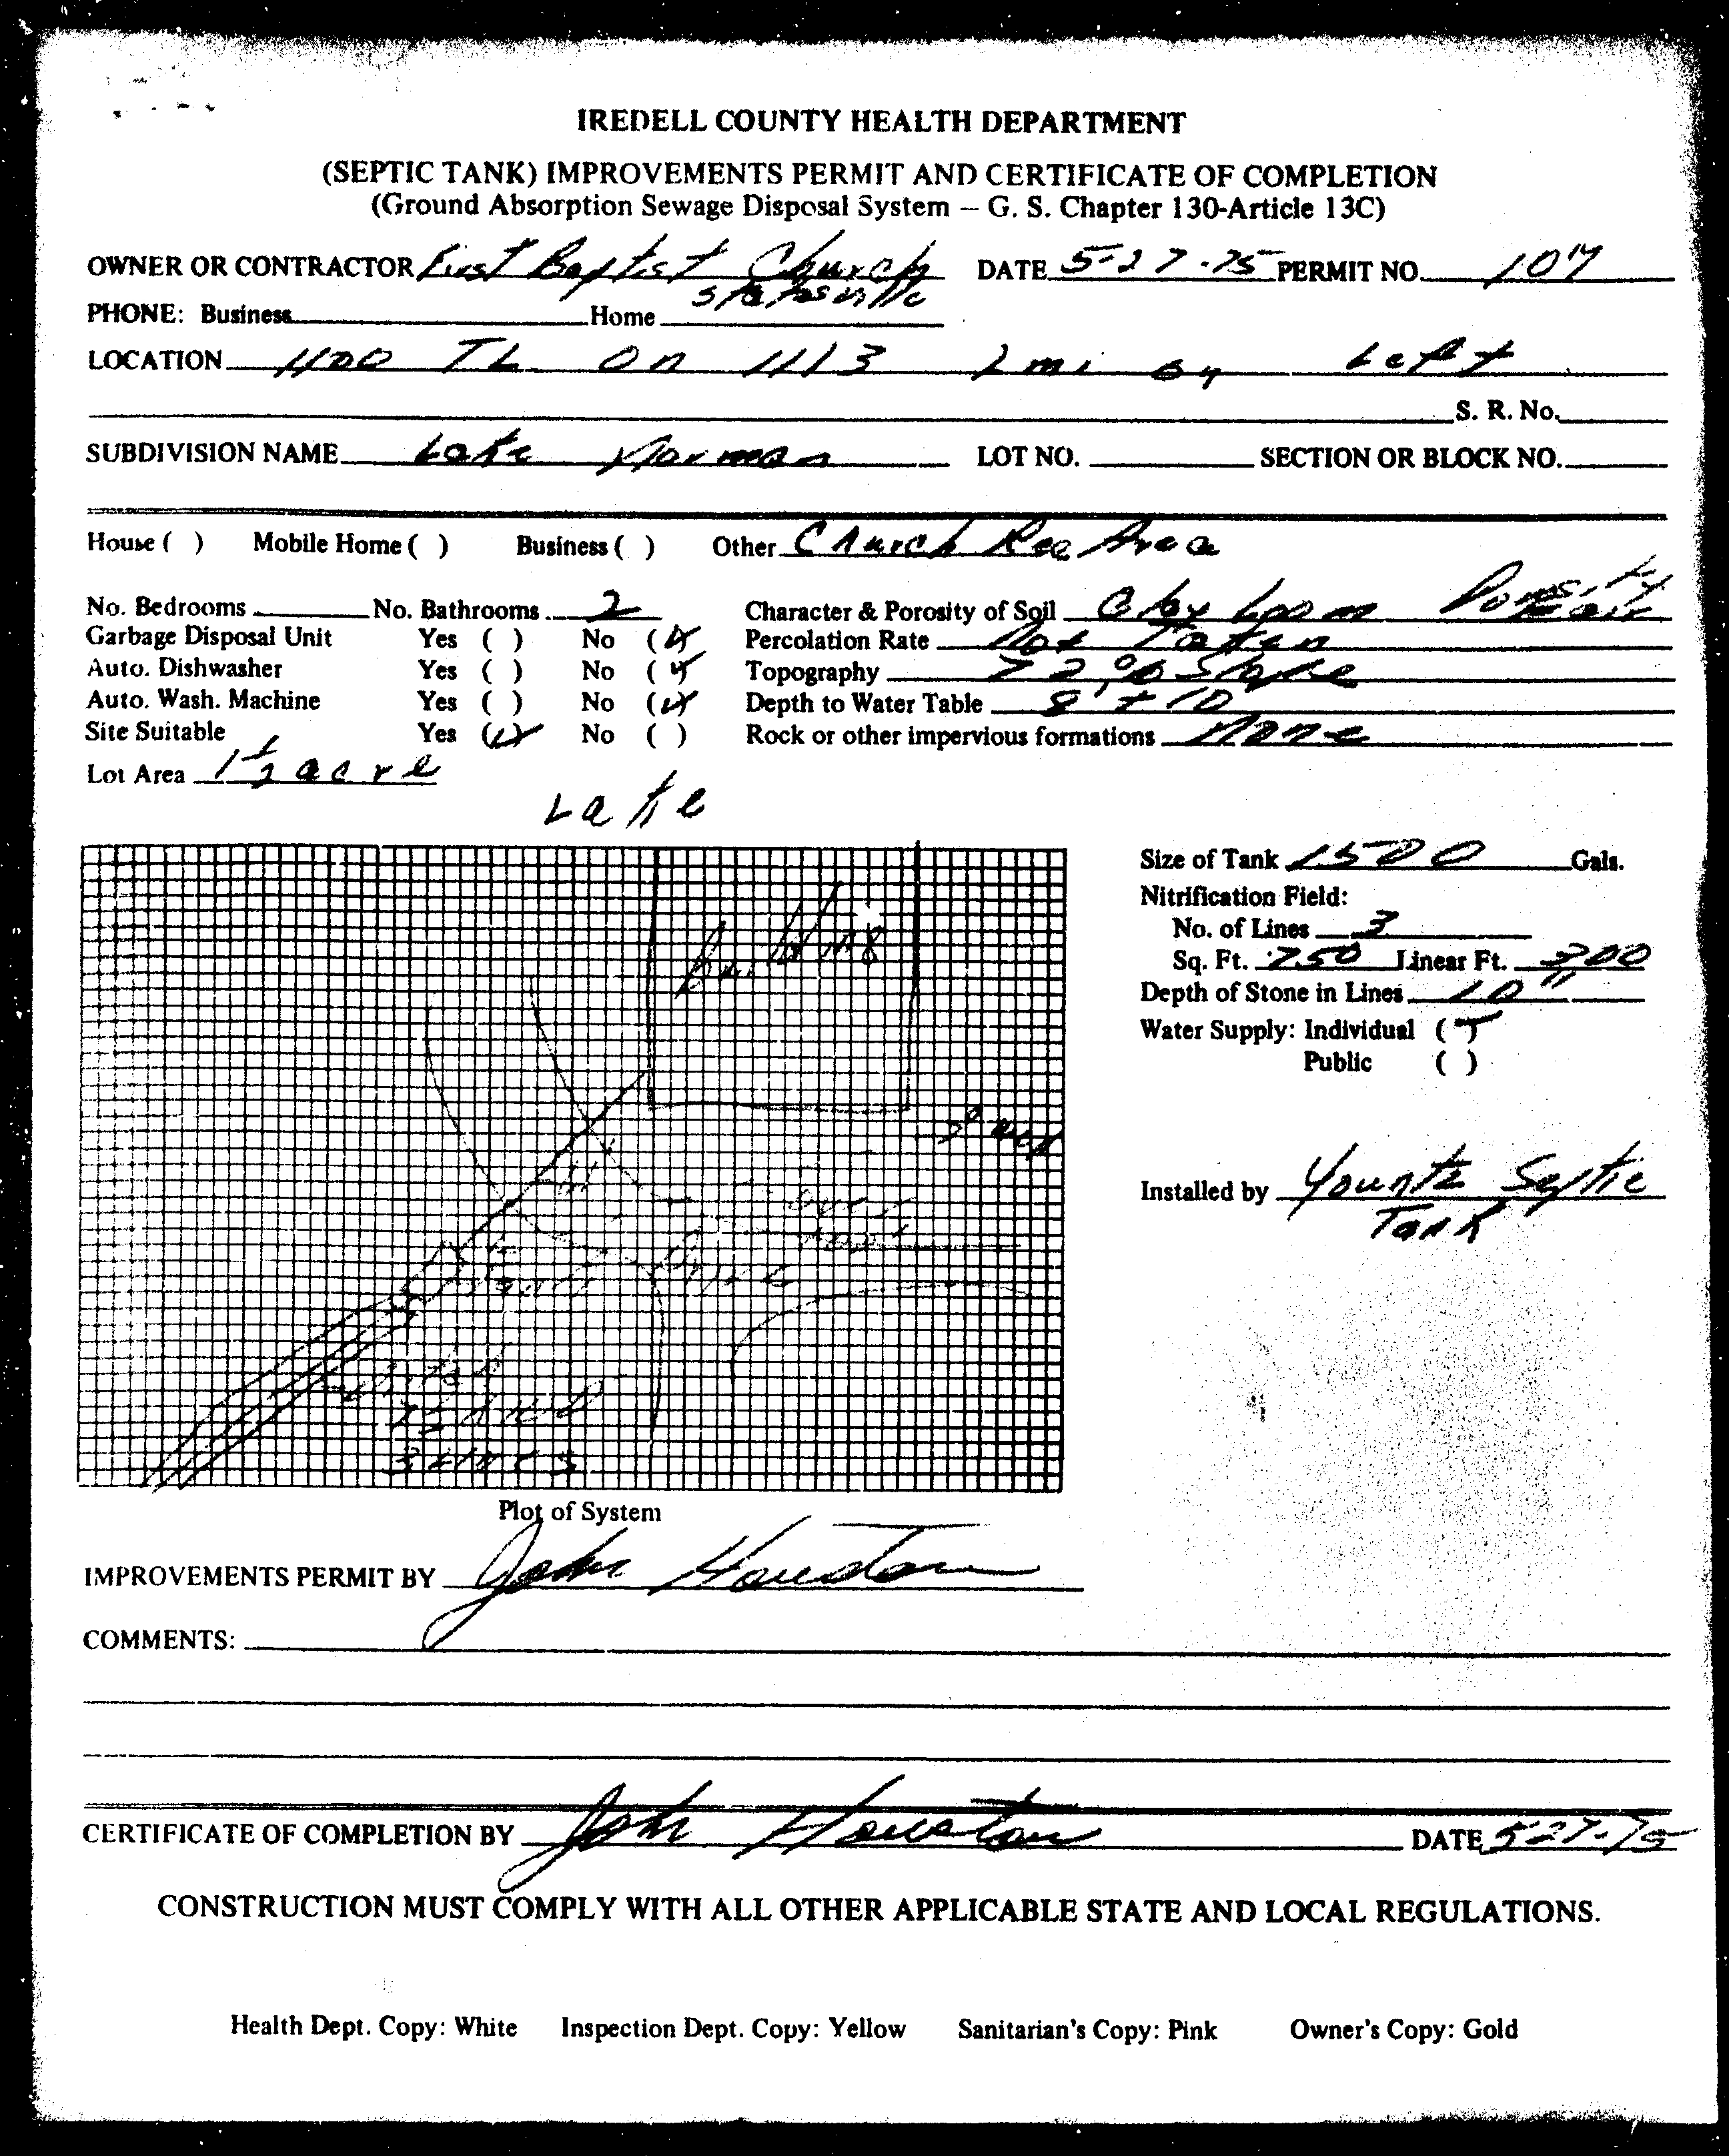 IREDELL COUNTY HEALTH DEPARTMENT
(SEPTIC TANK) IMPROVEMENTS PERMIT AND CERTIFICATE OF COMPLETION
(Ground Absorption Sewage Disposal System – G. S. Chapter 130-Article 13C)
OWNER OR CONTRACTOR First Baptist Church DATE 5-27-75 PERMIT NO. 
Statesville
PHONE: Business Home
LOCATION 1100 TL On 1113 1 mi on Left
S. R. No.
SUBDIVISION NAME Lake Norman LOT NO. SECTION OR BLOCK NO.
House ( ) Mobile Home ( ) Business ( ) Other Church Rec Area
No. Bedrooms No. Bathrooms 2 Character & Porosity of Soil Clay Loam Porosity Fair
Garbage Disposal Unit Yes ( ) No (✓) Percolation Rate Not Taken
Auto. Dishwasher Yes ( ) No (✓) Topography 72% Slope
Auto. Wash. Machine Yes ( ) No (✓) Depth to Water Table 8' + 10
Site Suitable Yes (✓) No ( ) Rock or other impervious formations None
Lot Area 1 1/2 acre
Lake
Size of Tank 1500 Gals.
Nitrification Field:
Building
No. of Lines 3
Sq. Ft. 750 Linear Ft. 300
Depth of Stone in Lines 10"
Water Supply: Individual (✓)
Public ( )
Installed by Yountz Septic
Tank
3 Lines
Plot of System
IMPROVEMENTS PERMIT BY John Houston
COMMENTS:
CERTIFICATE OF COMPLETION BY John Houston DATE 5-27-75
CONSTRUCTION MUST COMPLY WITH ALL OTHER APPLICABLE STATE AND LOCAL REGULATIONS.
Health Dept. Copy: White Inspection Dept. Copy: Yellow Sanitarian's Copy: Pink Owner's Copy: Gold